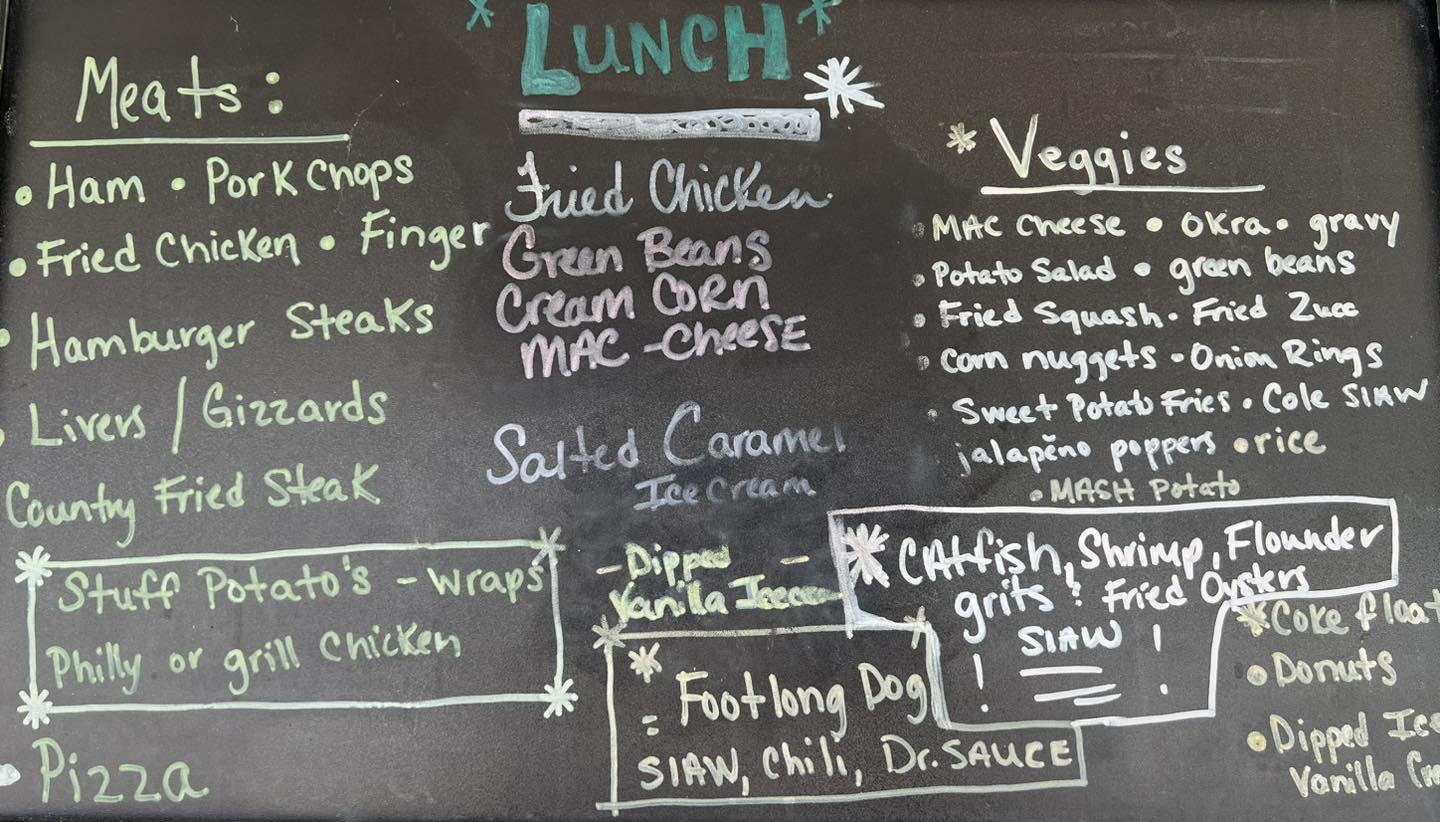 LUNCH
Meats:
• Ham • Pork Chops
• Fried Chicken • Finger
• Hamburger Steaks
• Livers / Gizzards
Country Fried Steak
Stuff Potato's - wraps
Philly or grill Chicken
Pizza
Fried Chicken
Green Beans
Cream Corn
MAC - Cheese
Salted Caramel
Ice Cream
- Dipped -
Vanilla
Footlong Dog
SlAW, Chili, Dr. SAUCE
Veggies
• MAC Cheese • Okra • gravy
• Potato Salad • green beans
• Fried Squash • Fried Zucc
• Corn nuggets • Onion Rings
• Sweet Potato Fries • Cole SlAW
jalapeño poppers • rice
• MASH Potato
CAtfish, Shrimp, Flounder
grits : Fried Oysters
! SlAW !
Coke float
• Donuts
• Dipped Ice
Vanilla